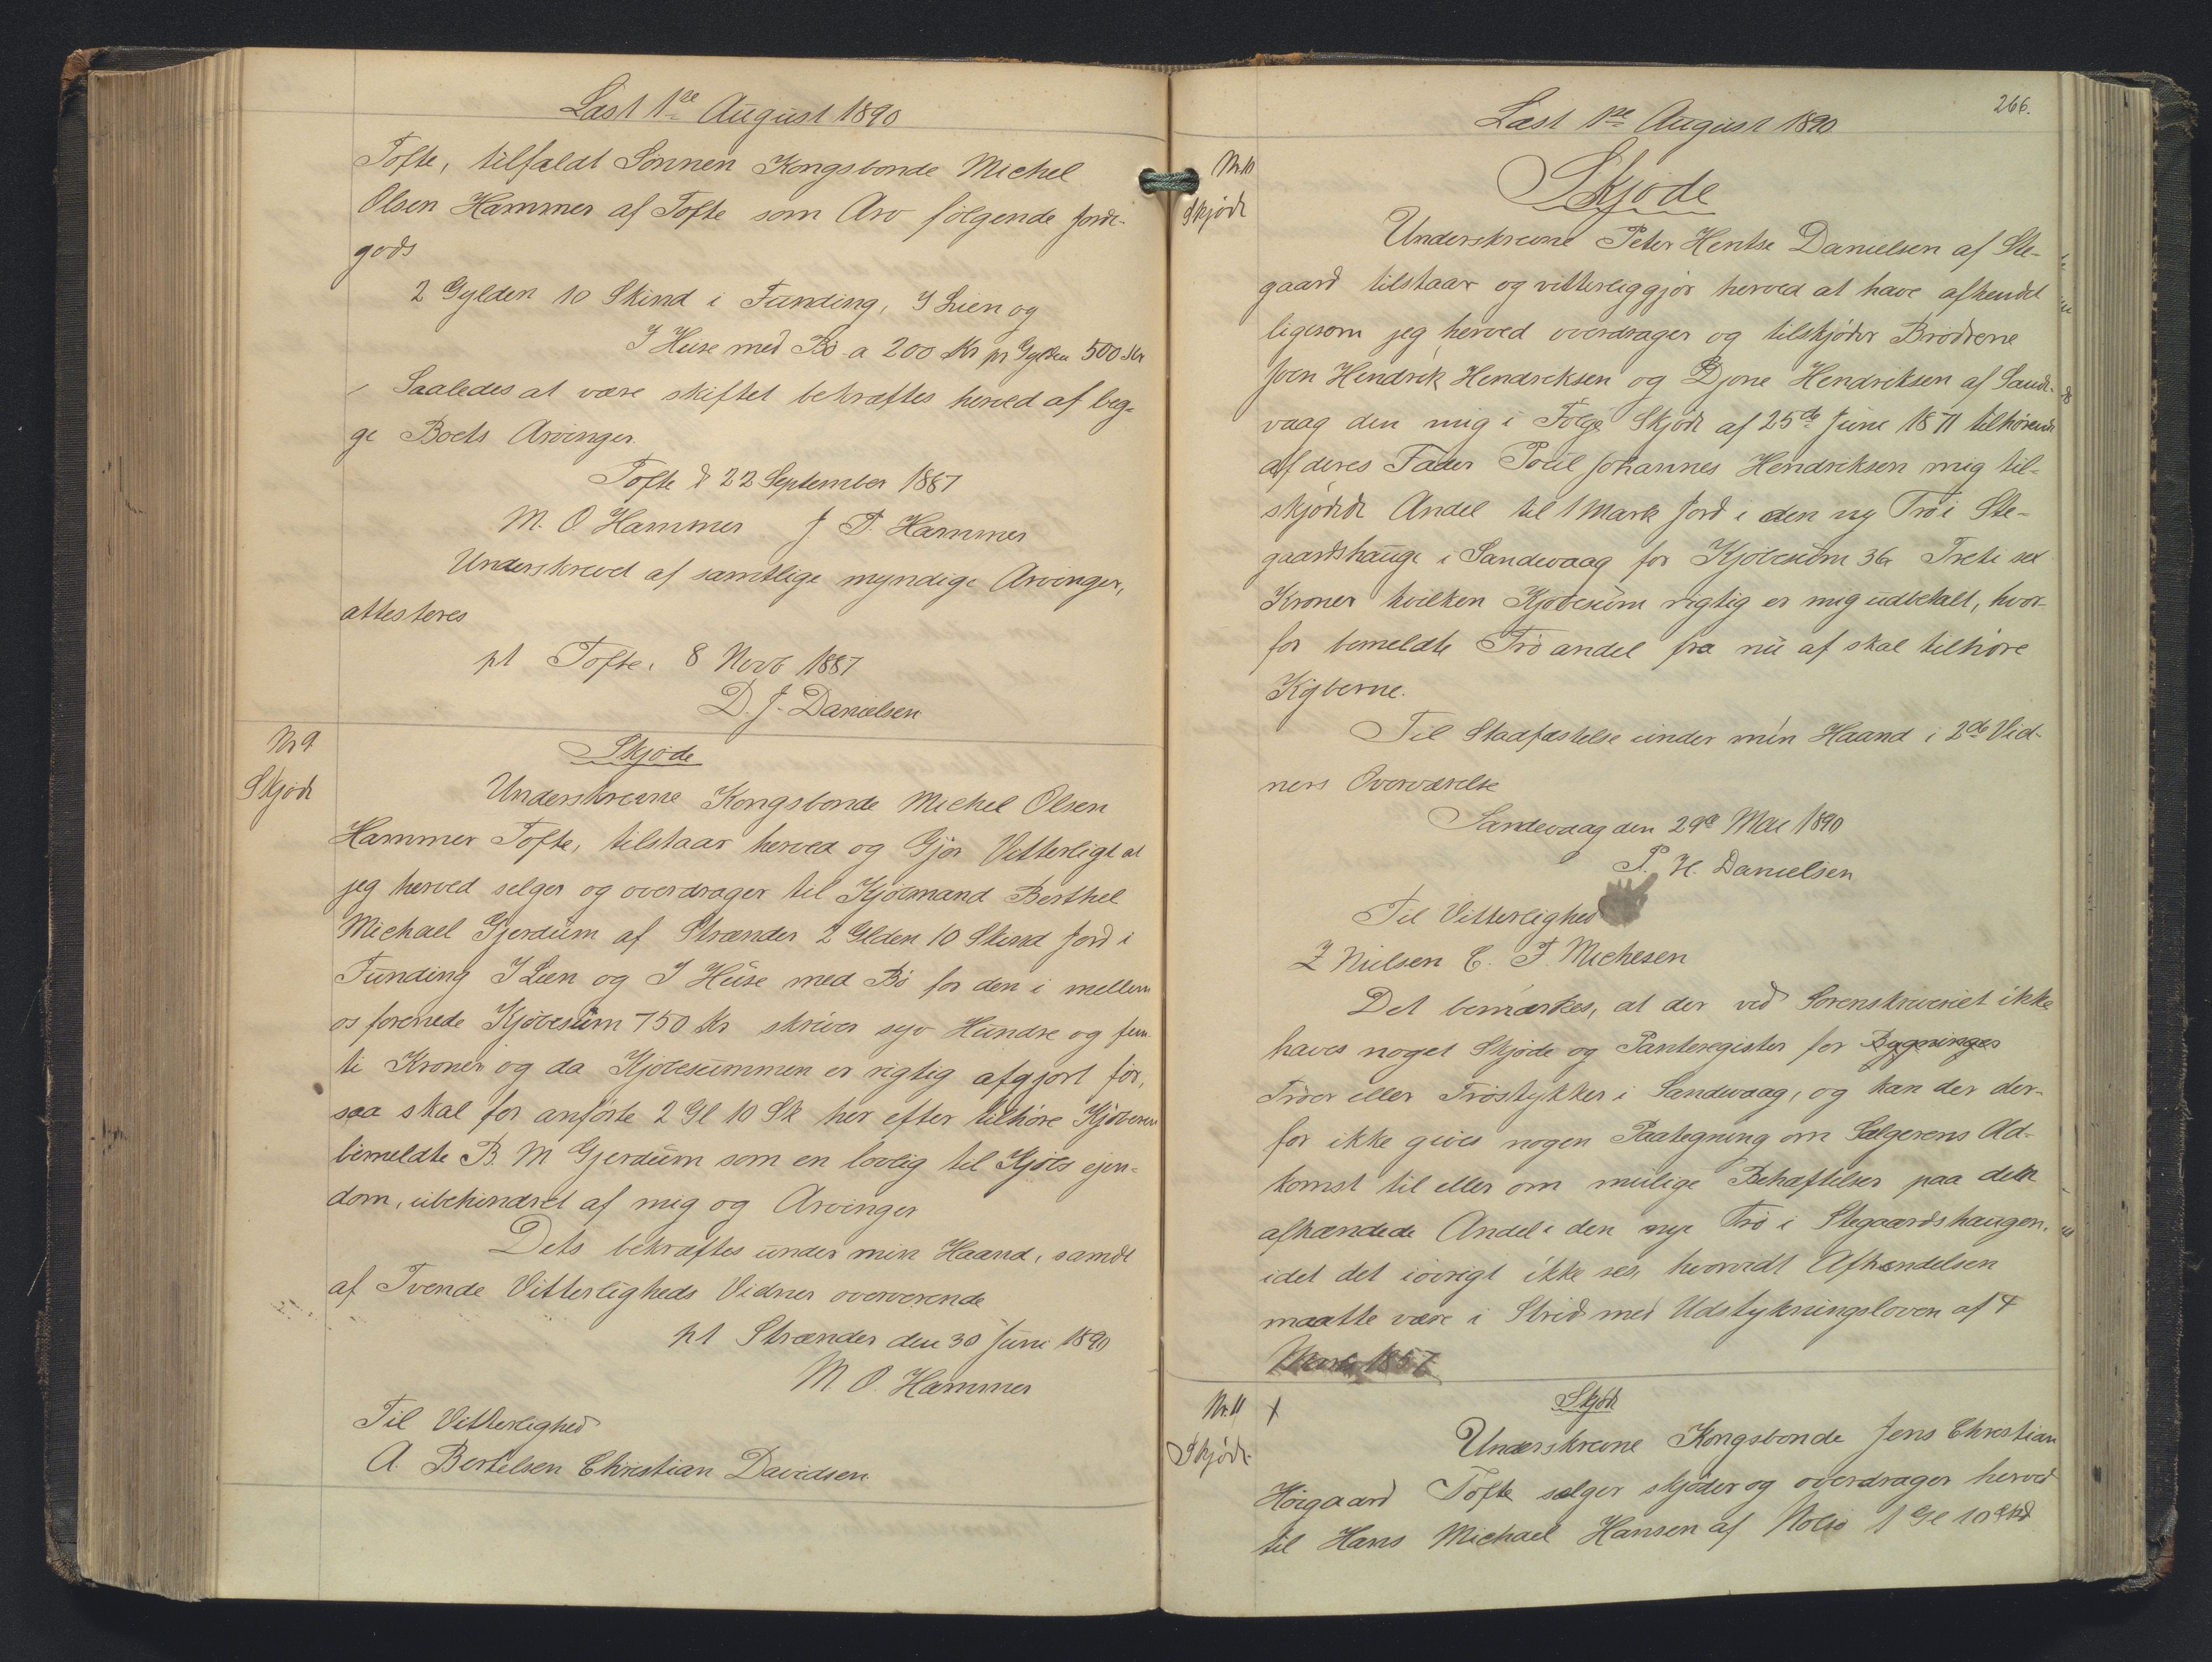 Læst 1ste August 1890
Tofte, tilfaldt Sönnen Kongsbonde Michel
Olsen Hammer af Tofte som Arv fölgende Jorde-
gods
2 Gylden 10 Skind i Funding, I Lien og
I Huse med Bö a 200 Kr pr Gylden 500 Kr
Saaledes at være skiftet bekræftes herved af beg-
ge Boets Arvinger.
Tofte d 22 September 1887
M. O. Hammer J P. Hammer
Underskrevet af samtlige myndige Arvinger,
attesteres
pt Tofte, 8 Novb 1887
D. J. Danielsen
Nr 9
Skjöde
Skjöde
Underskrevne Kongsbonde Michel Olsen
Hammer Tofte, tilstaar herved og Gjör Vitterligt at
jeg herved selger og overdrager til Kjöbmand Berthel
Michael Gjerdum af Strænder 2 Glden 10 Skind Jord i
Funding I Lien og I Huse med Bö for den i mellem
os forenede Kjöbesum 750 Kr skriver syv Hundre og fem
ti Kroner og da Kjöbesummen er rigtig afgjort for,
saa skal for anförte 2 Gl 10 Sk her efter tilhöre Kjöberen
bemeldte B. M Gjerdum som en lovlig til Kjöbs ejen-
dom, ubehindret af mig og Arvinger
Dets bekræftes under min Haand, samdt
af Tvende Vitterligheds Vidner overværende
pt Strænder den 30 Juni 1890
M. O. Hammer
Til Vitterlighed
A. Bertelsen Christian Davidsen
266.
Læst 1ste August 1890
Nr. 10
Skjöde
Skjöde
Underskrevne Peter Hentse Danielsen af Ste-
gaard tilstaar og vitterliggjör herved at have afhendet
ligesom jeg herved overdrager og tilskjöder Brödrene
Joen Hendrik Hendriksen og Djone Hendriksen af Sande-
vaag den mig i Fölge Skjöde af 25de Juni 1871 tilhörende
af deres Fader Poul Johannes Hendriksen mig til-
skjödede Andel til 1 Mark Jord i den ny Trö i Ste-
gaardshauge i Sandevaag for Kjöbesum 36 Treti sex
Kroner hvilken Kjöbesum rigtig er mig udbetalt, hvor-
for bemeldte Tröandel fra nu af skal tilhöre
Kjöberne.
Til Stadfæstelse under min Haand i 2de Vid-
ners Overværelse
Sandevaag den 29de Mai 1890
P. H. Danielsen
Til Vitterlighed
Z Nielsen C. F. Michesen
Det bemærkes, at der ved Sorenskriveriet ikke
haves noget Skjöde og Panteregister for Bygninger
Tröer eller Tröstykker i Sandevaag, og kan der der-
for ikke gives nogen Paategning om Sælgerens Ad-
komst til eller om mulige Behæftelser paa den
afhændede Andel i den nye Trö i Stegaardshaugen,
idet det iövrigt ikke ses, hvorvidt Afhændelsen
maatte være i Strid med Udstykningsloven af 4
Marts 1857
Nr. 11 X
Skjöde
Skjöde
Underskrevne Kongsbonde Jens Christian
Höigaard Tofte sælger skjöder og overdrager herved
til Hans Michael Hansen af Nolsö 1 Gl 10 Skd